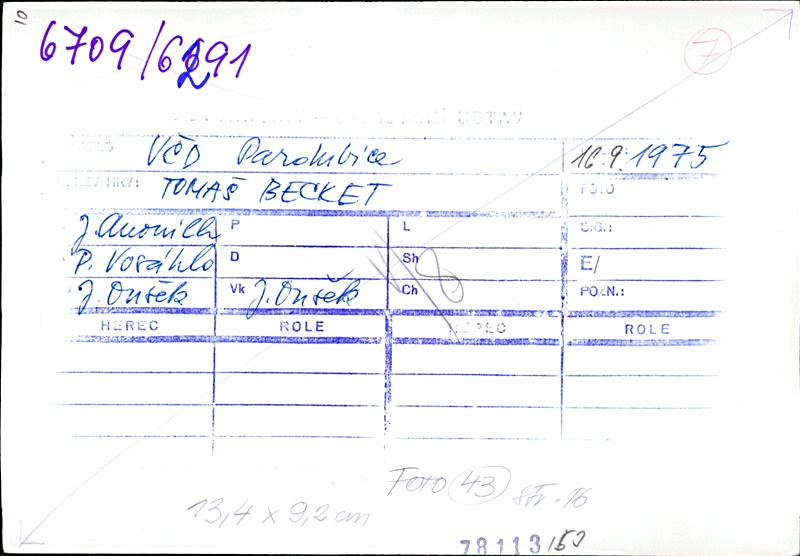 10
6709/6291
7
ÚSTAV
VČD Pardubice 16.9.1975
NÁZEV HRY: TOMAŠ BECKET FOTO
J. P L SIG.:
P. Vosáhlo D Sh E/
J. Dušek Vk J. Dušek Ch POZN.:
4/8
HEREC ROLE HEREC ROLE
Foto 43 str. 16
13,4 x 9,2 cm
78113/53